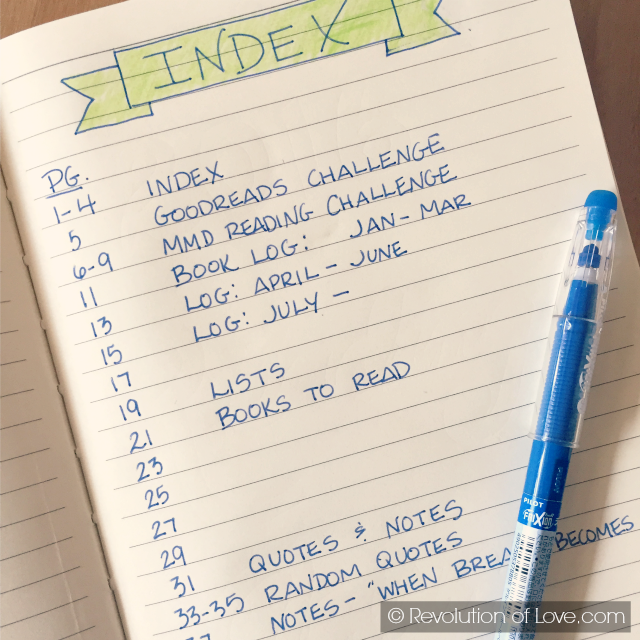 INDEX
PG.
1-4 INDEX
5 GOODREADS CHALLENGE
6-9 MMD READING CHALLENGE
11 BOOK LOG: JAN- MAR
13 LOG: APRIL - JUNE
15 LOG: JULY -
17
19 LISTS
21 BOOKS TO READ
23
25
27
29
31 QUOTES & NOTES
33-35 RANDOM QUOTES
37 NOTES - "WHEN BECOMES
PILOT
© Revolution of Love.com